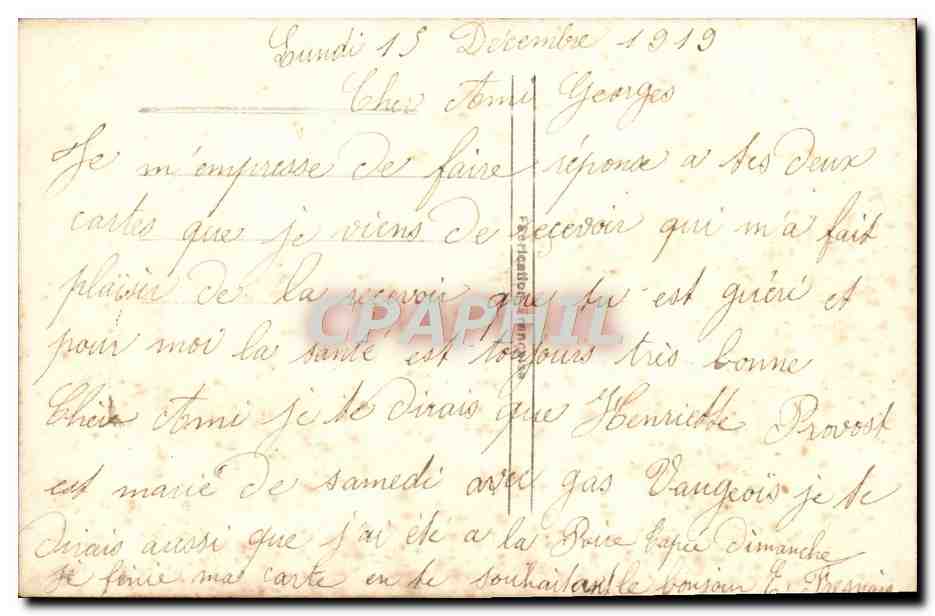 Lundi 15 Décembre 1919
Cher Ami Georges
Je m'empresse de faire réponse a tes deux
cartes que je viens de recevoir qui m'a fait
plaisir de la recevoir que tu est guéri et
pour moi la santé est toujours très bonne
Cher Ami je te dirais que Henriette Provost
est marié de samedi avec gas Vaugeois je te
dirais aussi que j'ai été a la Poire tapée dimanche
je finie ma carte en te souhaitant le bonjour E. Fresnais
Fabrication Française
CPAPHIL